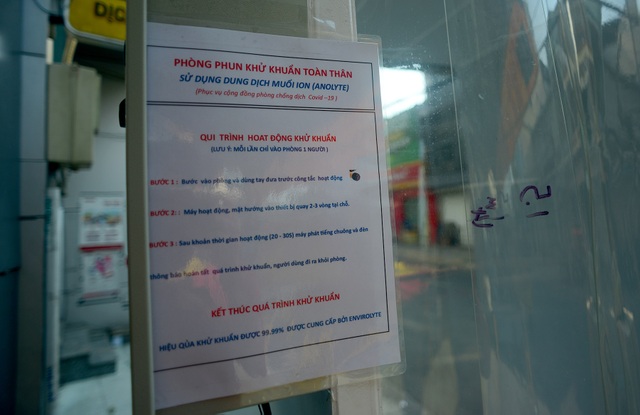 DỊC
PHÒNG PHUN KHỬ KHUẨN TOÀN THÂN
SỬ DỤNG DUNG DỊCH MUỐI ION (ANOLYTE)
(Phục vụ cộng đồng phòng chống dịch Covid –19 )
QUI TRÌNH HOẠT ĐỘNG KHỬ KHUẨN
(LƯU Ý: MỖI LẦN CHỈ VÀO PHÒNG 1 NGƯỜI )
BƯỚC 1 : Bước vào phòng và dùng tay đưa trước công tắc hoạt động
BƯỚC 2: : Máy hoạt động, mặt hướng vào thiết bị quay 2-3 vòng tại chỗ.
BƯỚC 3 : Sau khoản thời gian hoạt động (20 - 30S) máy phát tiếng chuông và đèn
thông báo hoàn tất quá trình khử khuẩn, người dùng đi ra khỏi phòng.
KẾT THÚC QUÁ TRÌNH KHỬ KHUẨN
HIỆU QỦA KHỬ KHUẨN ĐƯỢC 99.99% ĐƯỢC CUNG CẤP BỞI ENVIROLYTE